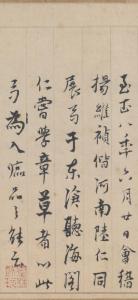 至正八年六月廿日會稽
楊維禎偕河南陸仁同
展弓于東滄聽海閣
仁嘗學章草者以此
弓為入臨品之能云